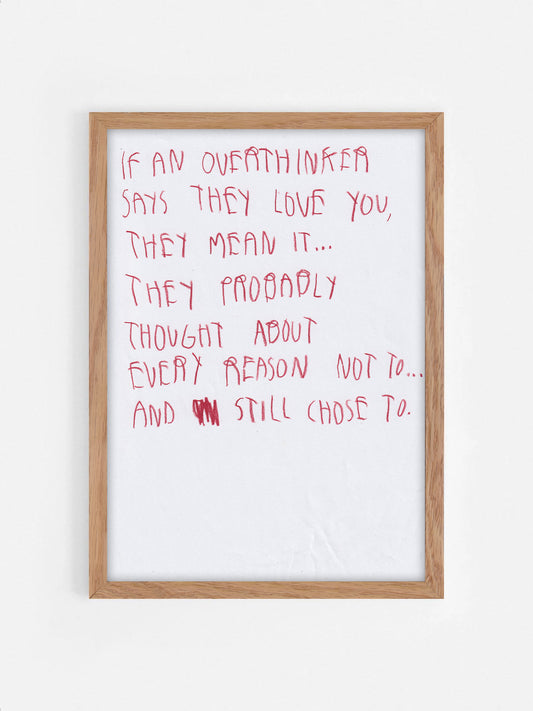 IF AN OVERTHINKER
SAYS THEY LOVE YOU,
THEY MEAN IT...
THEY PROBABLY
THOUGHT ABOUT
EVERY REASON NOT TO...
AND STILL CHOSE TO.